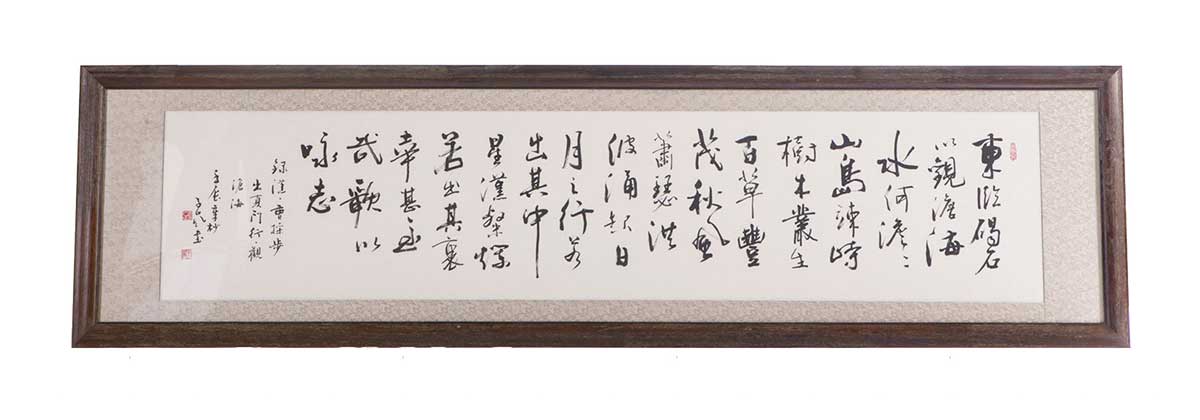 東臨碣石
以觀滄海
水何澹々
山島竦峙
樹木叢生
百草豐
茂秋風
蕭瑟洪
波涌起日
月之行若
出其中
星漢粲爛
若出其裏
幸甚至
哉歌以
咏志
錄漢·曹操步
出夏門行·觀
滄海
壬辰年杪